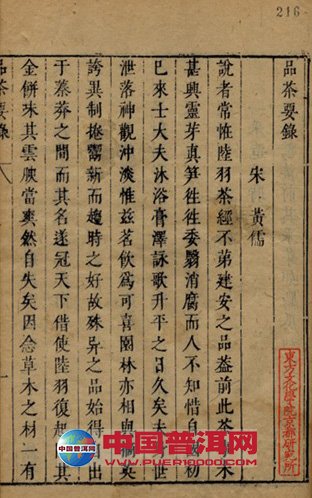 216
品茶要錄
宋 黃儒
說者常恠陸羽茶經不苐建安之品葢前此茶
甚興靈芽真笋徃徃委翳消腐而人不知惜自初
已來士大夫沐浴膏澤詠歌升平之日久矣夫
泄落神觀沖淡惟兹茗飲為可喜園林亦相與摘英
誇異制捲鬻新而趨時之好故殊異之品始得
于蓁莽之間而其名遂冠天下借使陸羽復起其
金餅味其雲腴當爽然自失矣因念草木之材一有
品茶要錄
東方文化學院京都研究所
中国普洱网
WWW.PUER10000.COM